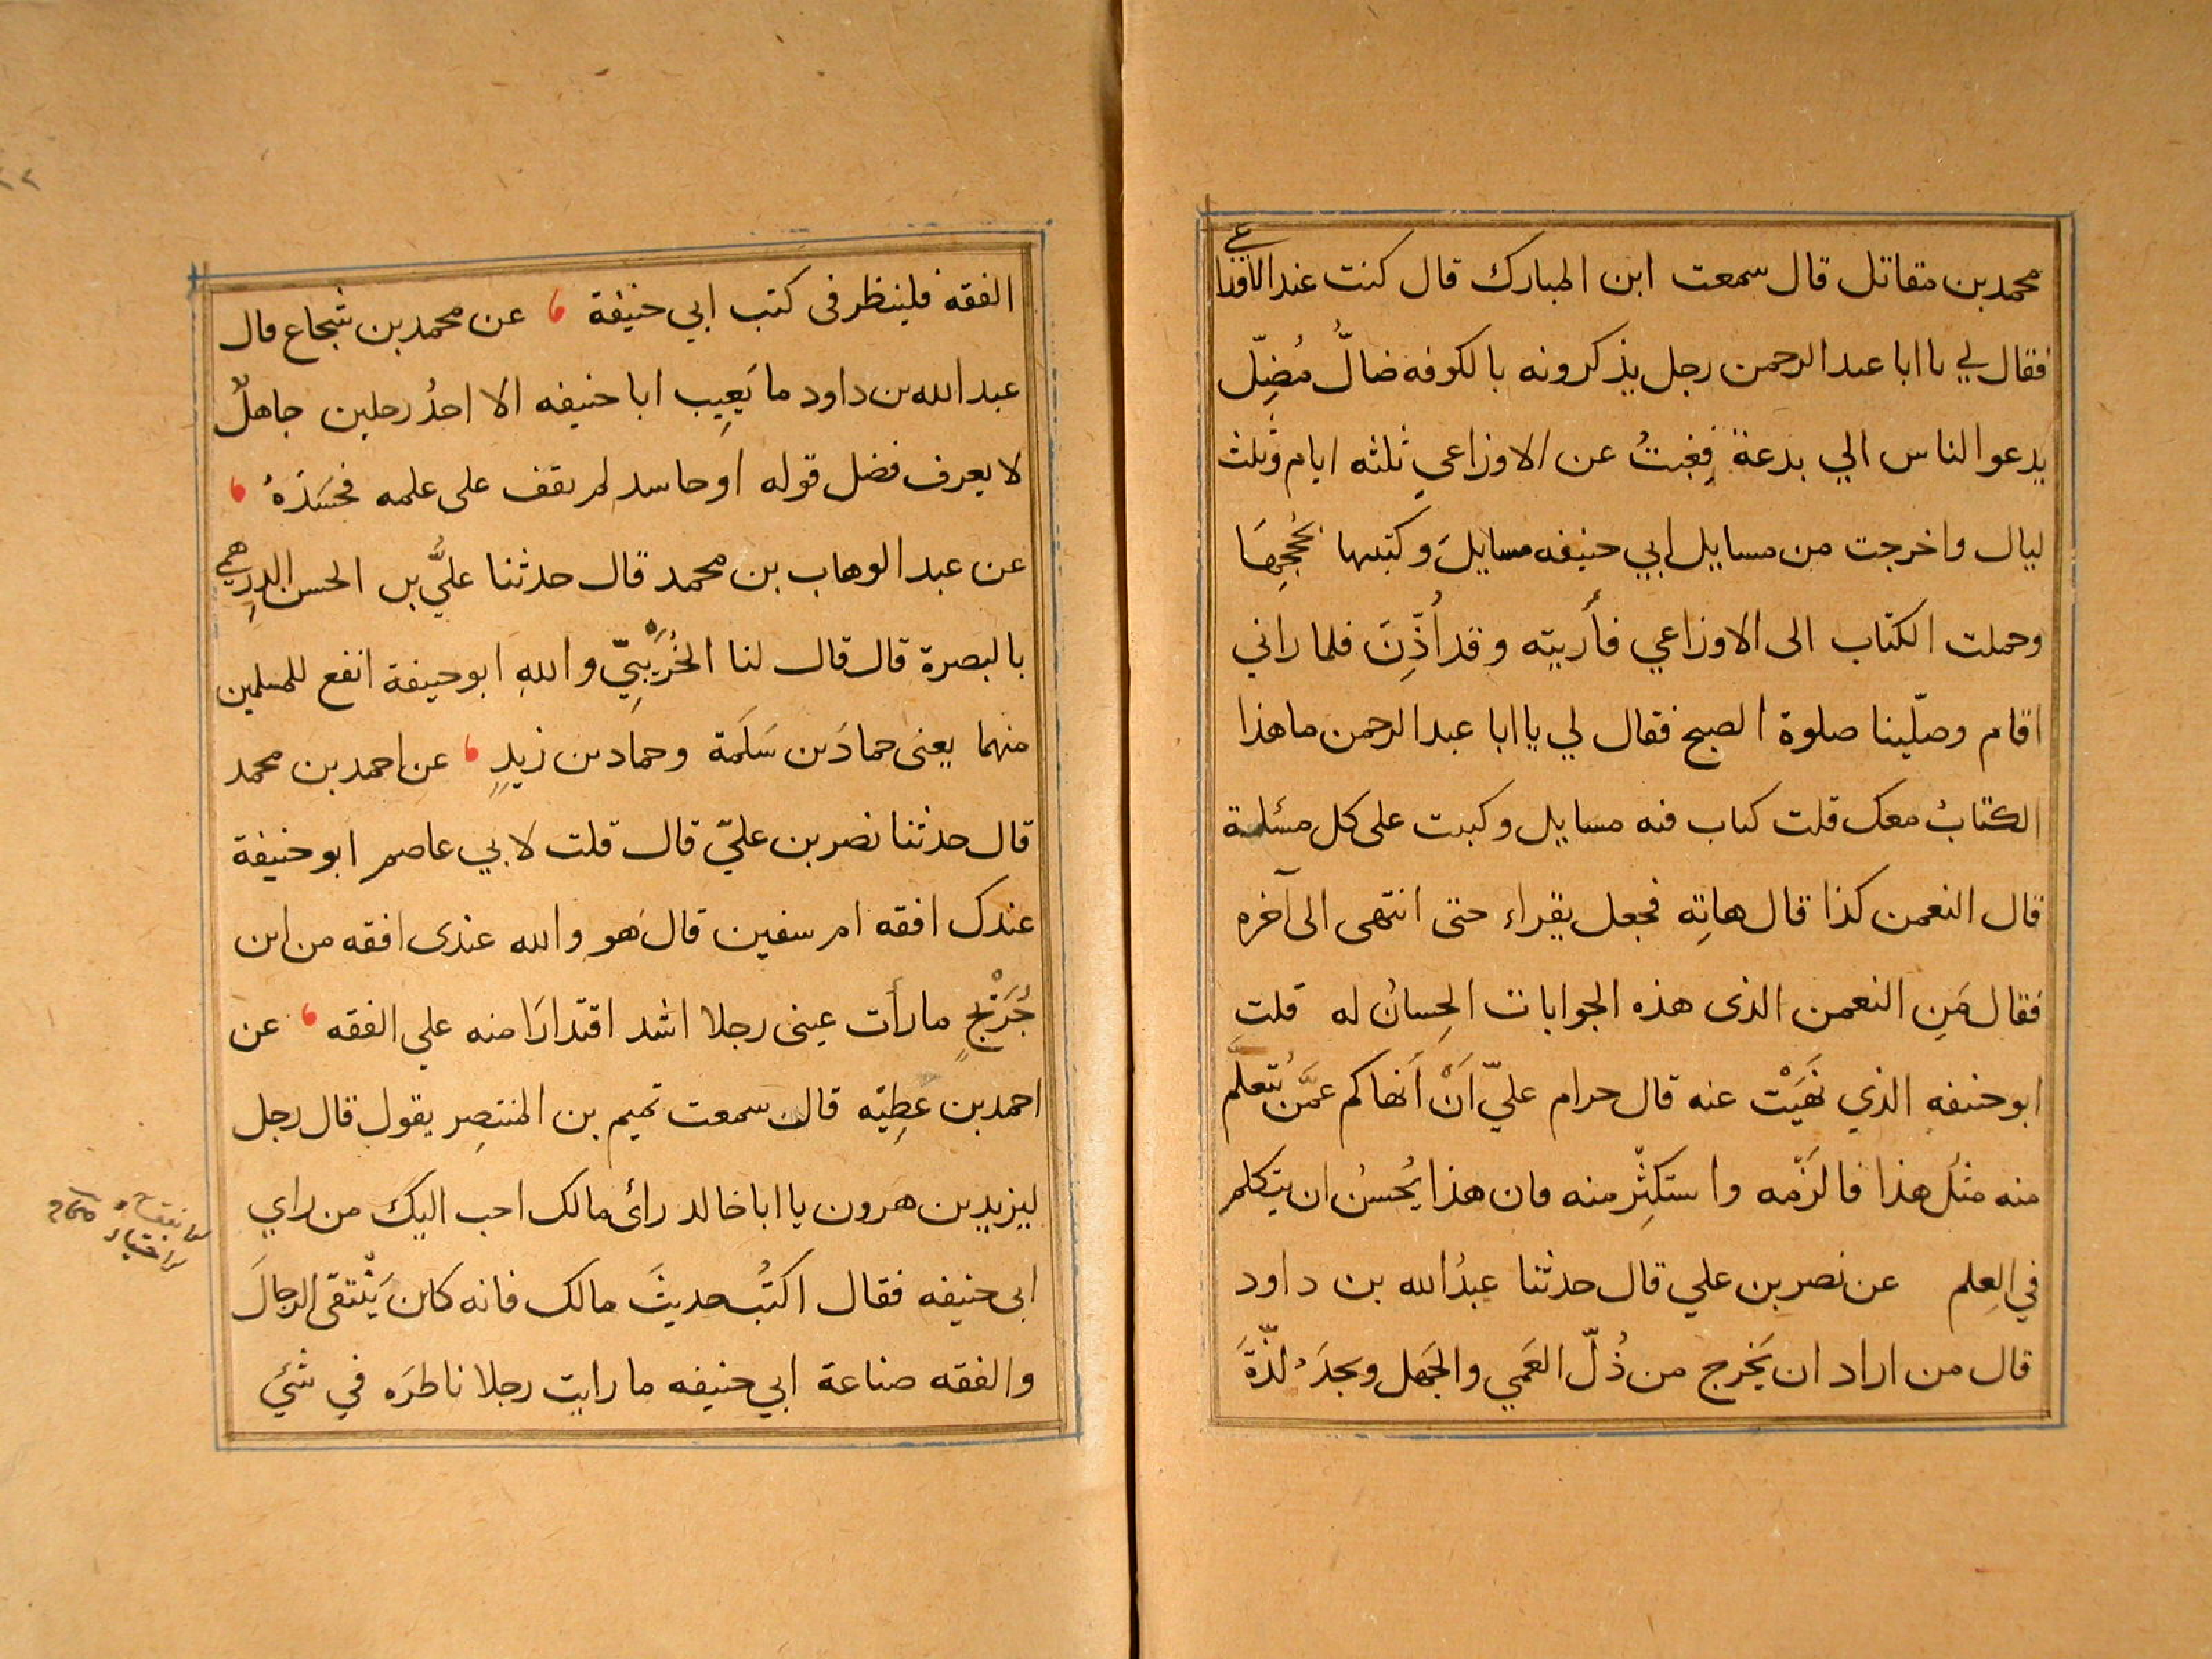 محمد بن مقاتل قال سمعت ابن المبارك قال كنت عند الاوزاعي
فقال لي يا ابا عبد الرحمن رجل يذكرونه بالكوفه ضالٌّ مُضِلّ
يدعو الناس الي بدعة فِغبتُ عن الاوزاعي ثلثه ايام وثلث
ليال واخرجت من مسايل ابي حنيفه مسايلَ وكتبتها بحُججِهَا
وحملت الكتاب الى الاوزاعي فأريته وقد اُذِّنَ فلما راني
اقام وصلّينا صلوة الصبح فقال لي يا ابا عبد الرحمن ما هذا
الكتابُ معك قلت كتاب فيه مسايل وكتبت على كل مسئلة
قال النعمن كذا قال هاتِه فجعل يقراء حتى انتهى الى آخره
فقال مَنِ النعمن الذى هذه الجوابات الحِسانُ له قلت
ابو حنيفه الذي نَهَيْت عنه قال حرام عليّ اَنْ اَنهاكم عمَّن يُتعلم
منه مثلُ هذا فالزَمه واستكثِر منه فان هذا يُحسنُ ان يتكلم
في العِلم عن نصر بن علي قال حدثنا عبدُ الله بن داود
قال من اراد ان يَخرج من ذُلّ العَمي والجَهل ويجدَ لذّةَ
الفقه فلينظر فى كتب ابي حنيفة عن محمد بن شجاع قال
عبد الله بن داود ما يَعِيب ابا حنيفه الا احدُ رجلين جاهلٌ
لا يعرف فضل قوله او حاسد لم يقف على علمه فحَسَدَهُ
عن عبد الوهاب بن محمد قال حدثنا عليُّ بن الحسن الدِرهمي
بالبصرة قال قال لنا الخُرَيْبِيّ واللهِ ابو حنيفة انفع للمسلمين
منهما يعنى حمادَ بن سَلَمة وحماد بن زيدٍ عن احمد بن محمد
قال حدثنا نصر بن عليّ قال قلت لابي عاصم ابو حنيفة
عندك افقه ام سفين قال هو والله عندى افقه من ابن
جُرَيْجٍ ما رأت عينى رجلا اشد اقتدارَا منه علي الفقه عن
احمد بن عَطِيّه قال سمعت تميم بن المنتصِر يقول قال رجل
ليزيد بن هرون يا ابا خالد رائ مالك احب اليك من راي
ابى حنيفه فقال اكتُب حديثَ مالك فانه كان يَنْتقى الرجالَ
والفقه صناعة ابي حنيفه ما رايت رجلا ناظرَه في شئ